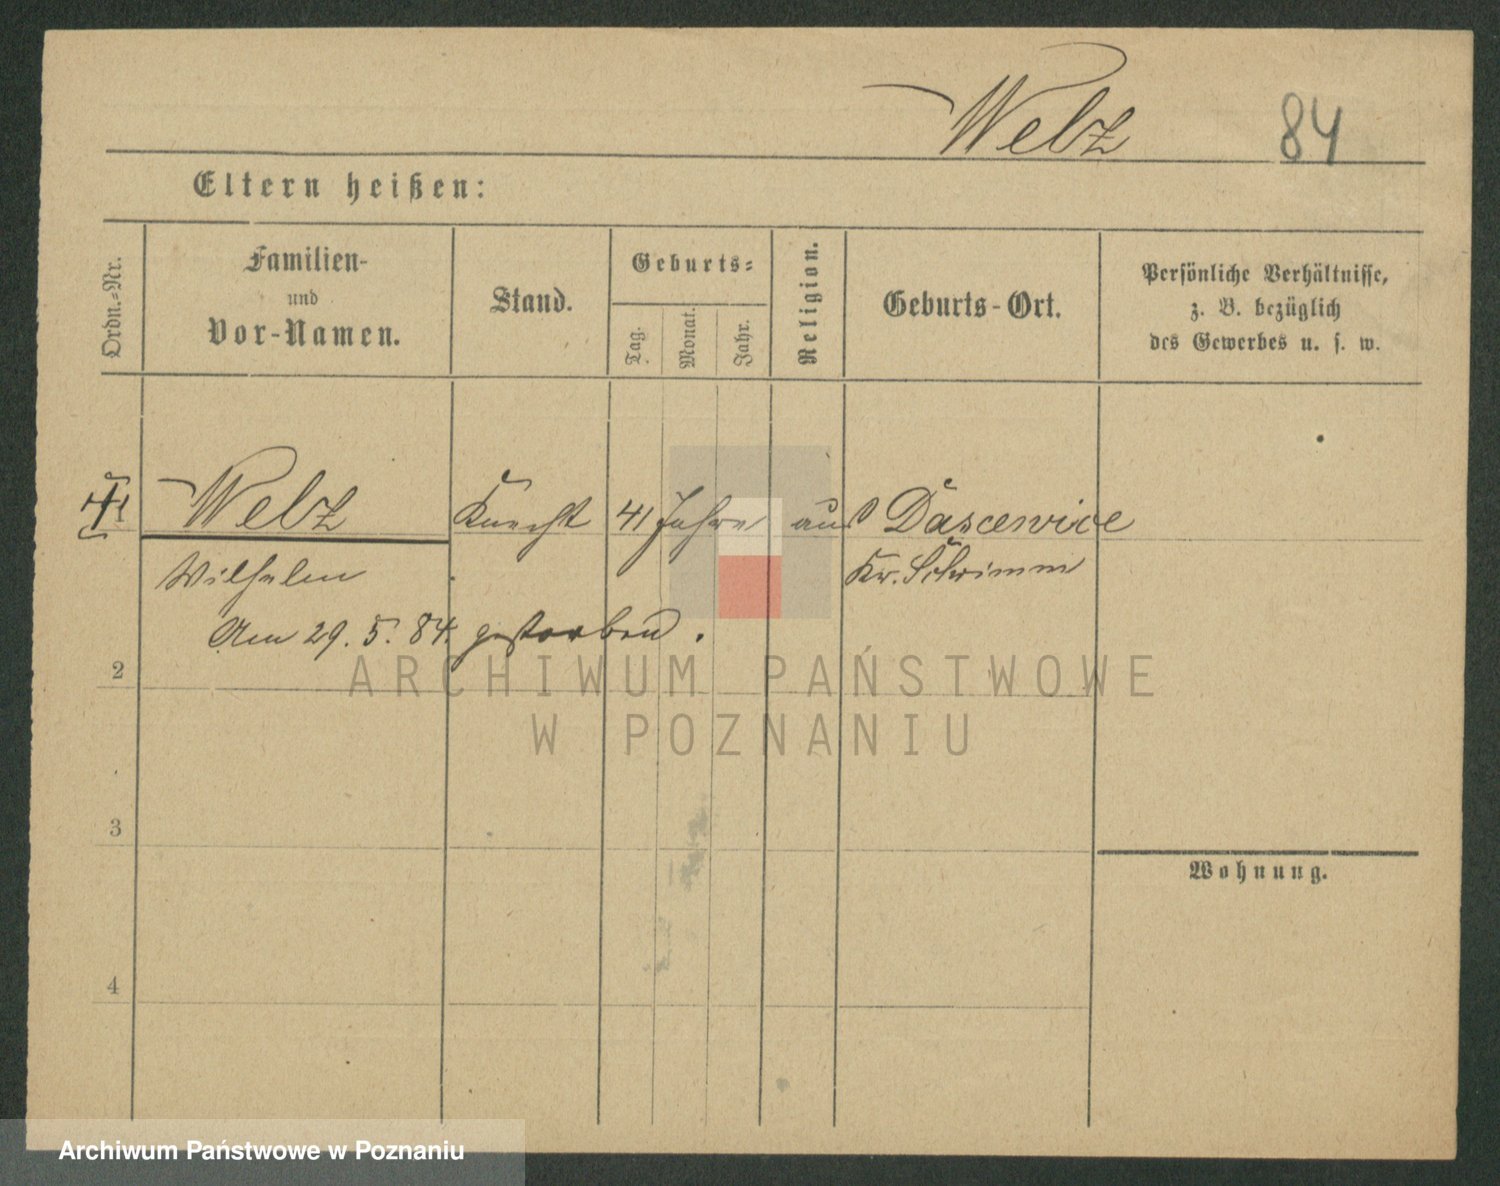 Welz 84
Eltern heißen:
Ordn.-Nr.
Familien-
und
Vor-Namen.
Stand.
Geburts-
Tag.
Monat.
Jahr.
Religion.
Geburts-Ort.
Persönliche Verhältnisse,
z. B. bezüglich
des Gewerbes u. s. w.
Welz Knecht 41 Jahre aus Dascewice
Wilhelm Kr. Schrimm
Am 29. 5. 84. gestorben.
2
ARCHIWUM PAŃSTWOWE
W POZNANIU
3
Wohnung.
4
Archiwum Państwowe w Poznaniu